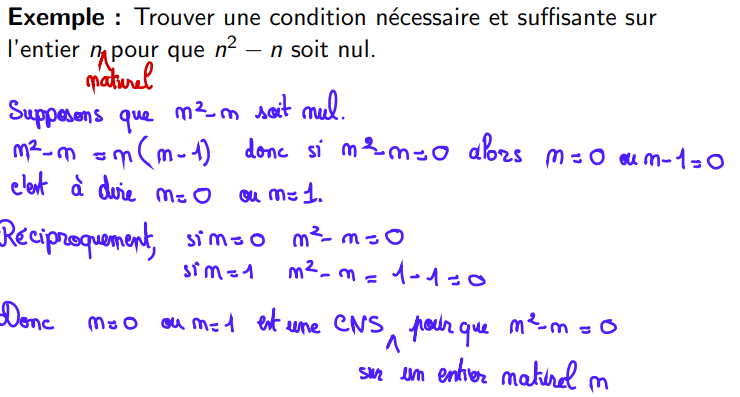 Exemple : Trouver une condition nécessaire et suffisante sur
l'entier n pour que n² − n soit nul.
naturel
Supposons que n²-n soit nul.
n²-n = n(n-1) donc si n²-n=0 alors n=0 ou n-1=0
c'est à dire n=0 ou n=1.
Réciproquement, si n=0 n²-n=0
si n=1 n²-n = 1-1=0
Donc n=0 ou n=1 est une CNS pour que n²-n=0
sur un entier naturel n